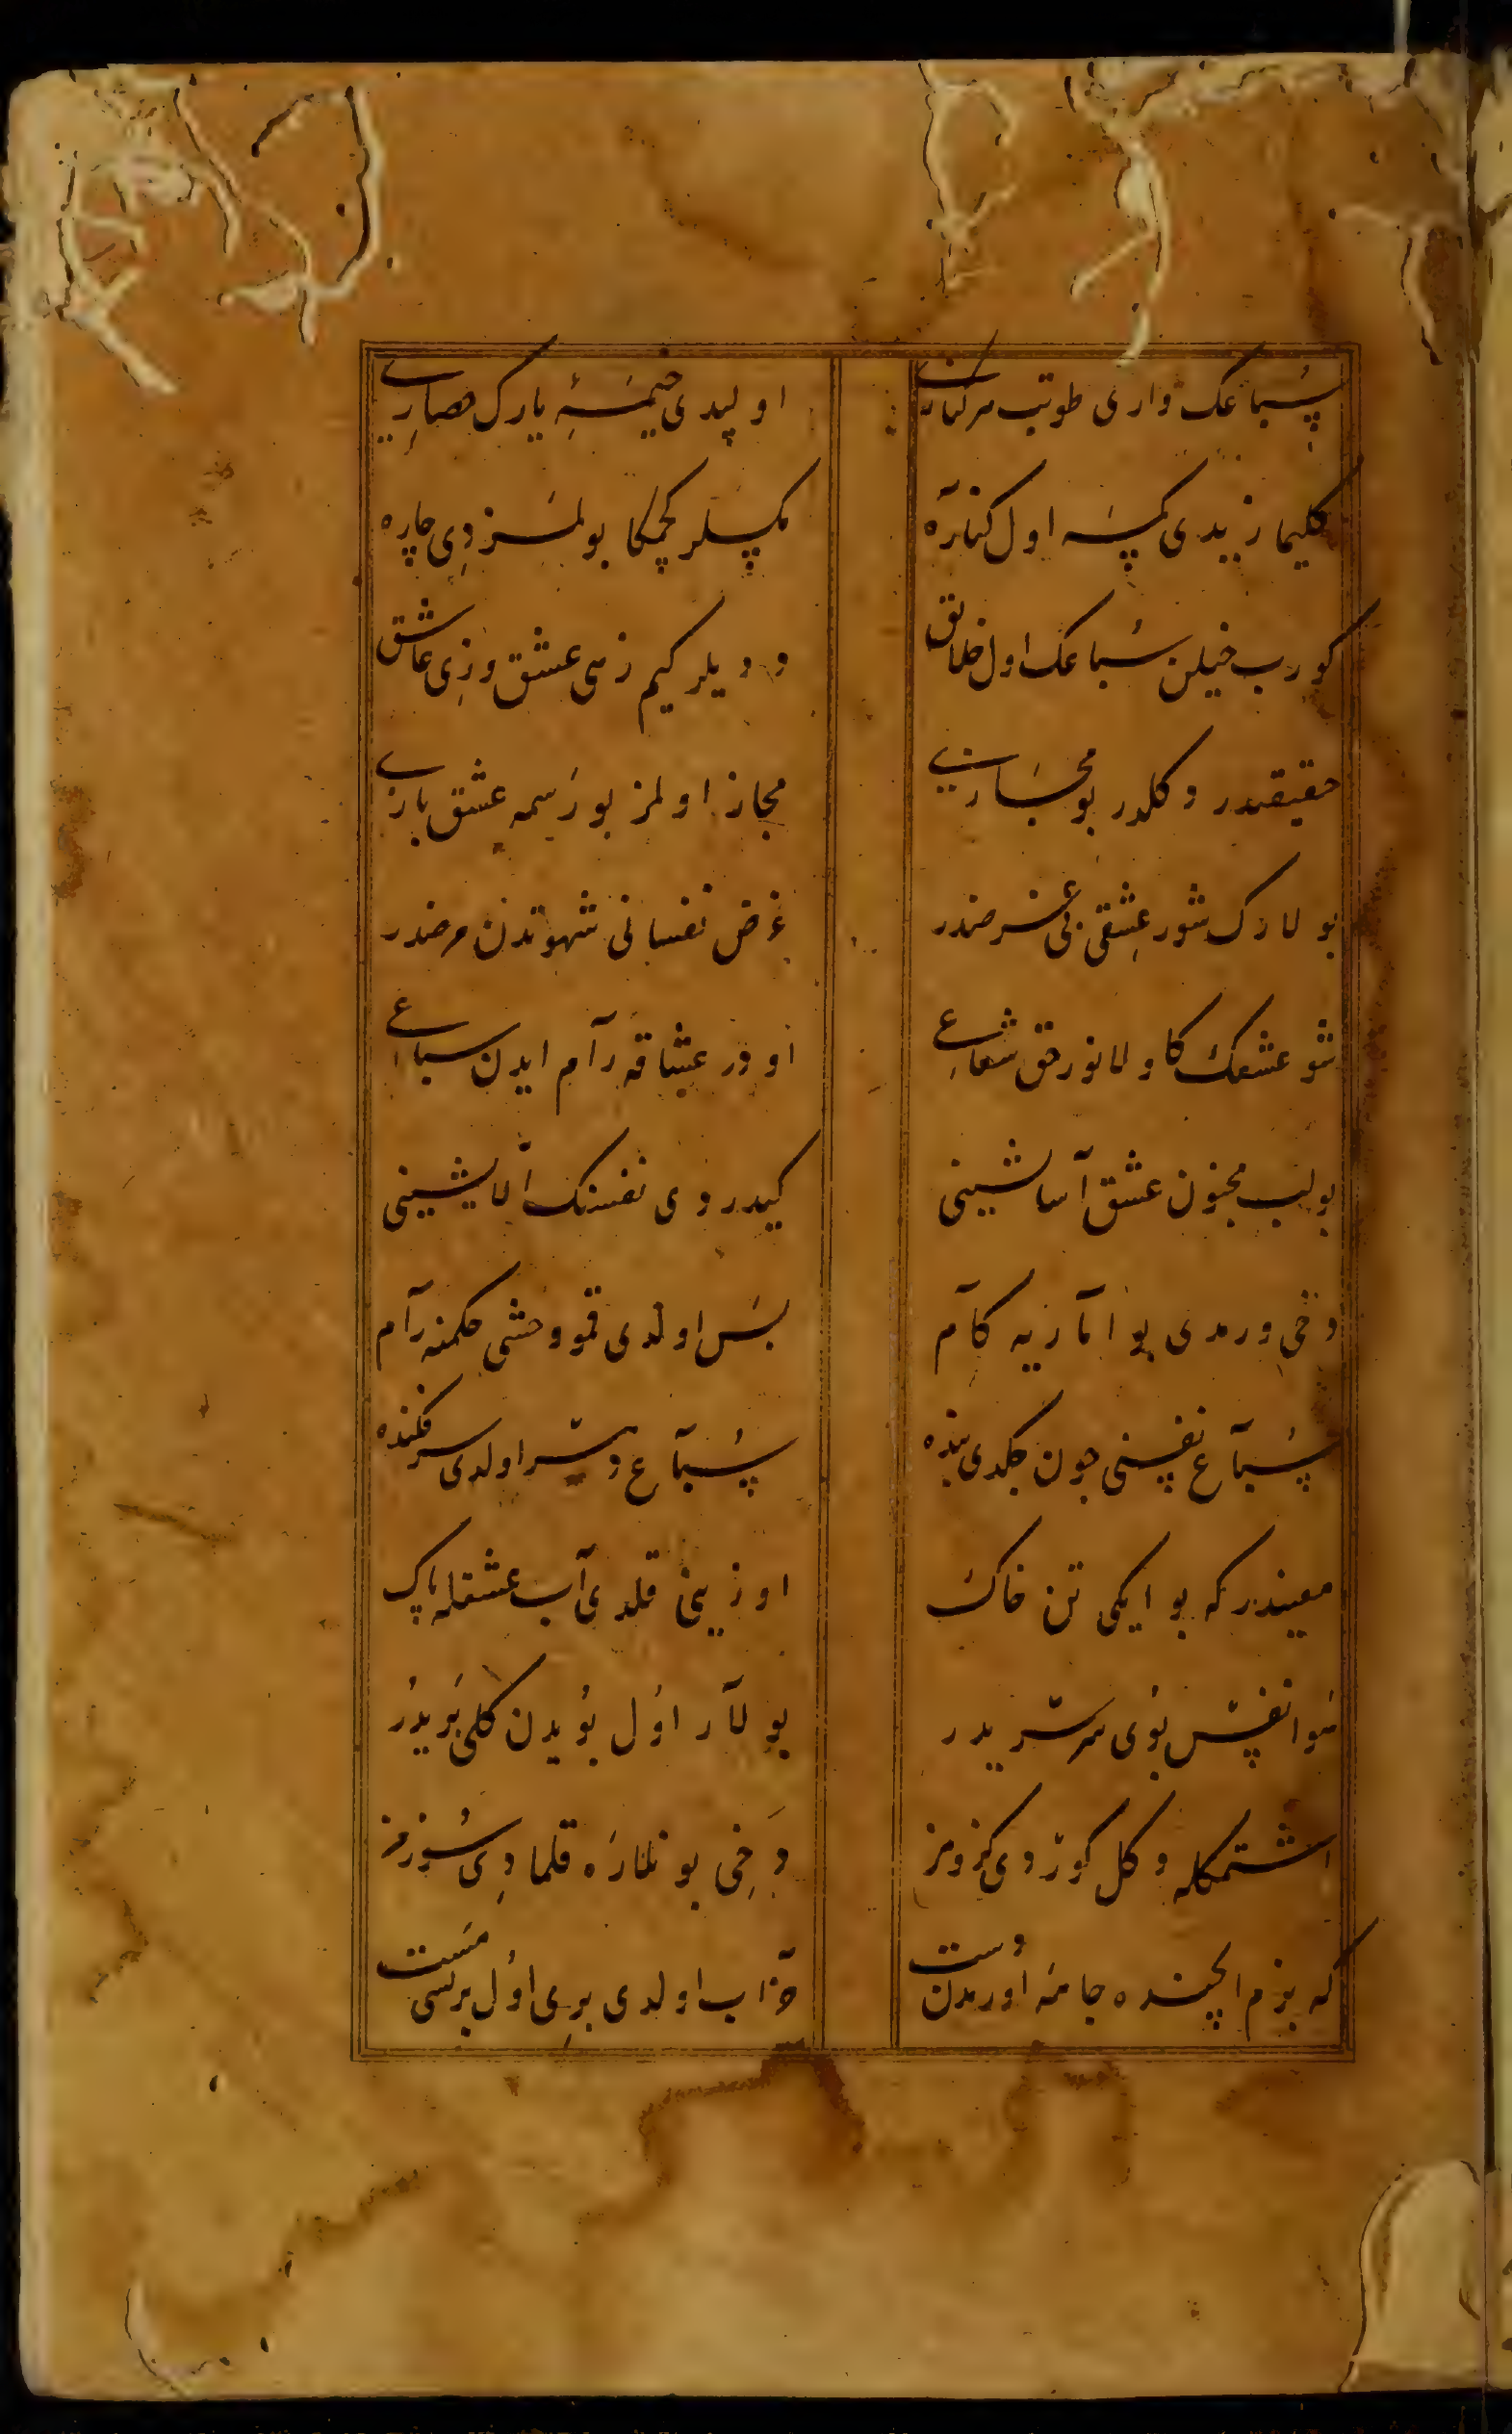 سباعك واری طوتب هر كناری
اولیدی خیمۀ یارك حصاری
كلیمازیدی كمسه اول كناره
كمسلر كچمكا بولمزدی چاره
كورب خیلن سباعك اول خلائق
ددیلر كیم زهی عشق وزهی عاشق
حقیقتدر دكلدر بو مجازی
مجاز اولمز بو رسمه عشق بازی
بولارك شور عشقی بی غرضدر
غرض نفسانی شهوتدن مرضدر
شو عشقك كاولا نور حق شعاعی
اودر عشاقه رام ایدن سباعی
بولب مجنون عشق آسایشینی
كیدردی نفسنك آلایشینی
دخی ورمدی بو اماریه كام
بس اولدی قمو وحشی حكمنه رام
سباع نفسنی چون كلدی بنده
سباع دشر اولدی سرفكنده
معیندر كه بو ایكی تن خاك
اوزینی قلدی آب عشقله پاك
هوا نفس بوی سرسریدر
بولار اول بویدن كلی بریدر
اشتمكله دكل كوردی كزومز
دخی بونلاره قلمادی سوزمز
كه بزم ایچنده جامه اورمدن دست
خراب اولدی بری اول برسی مست